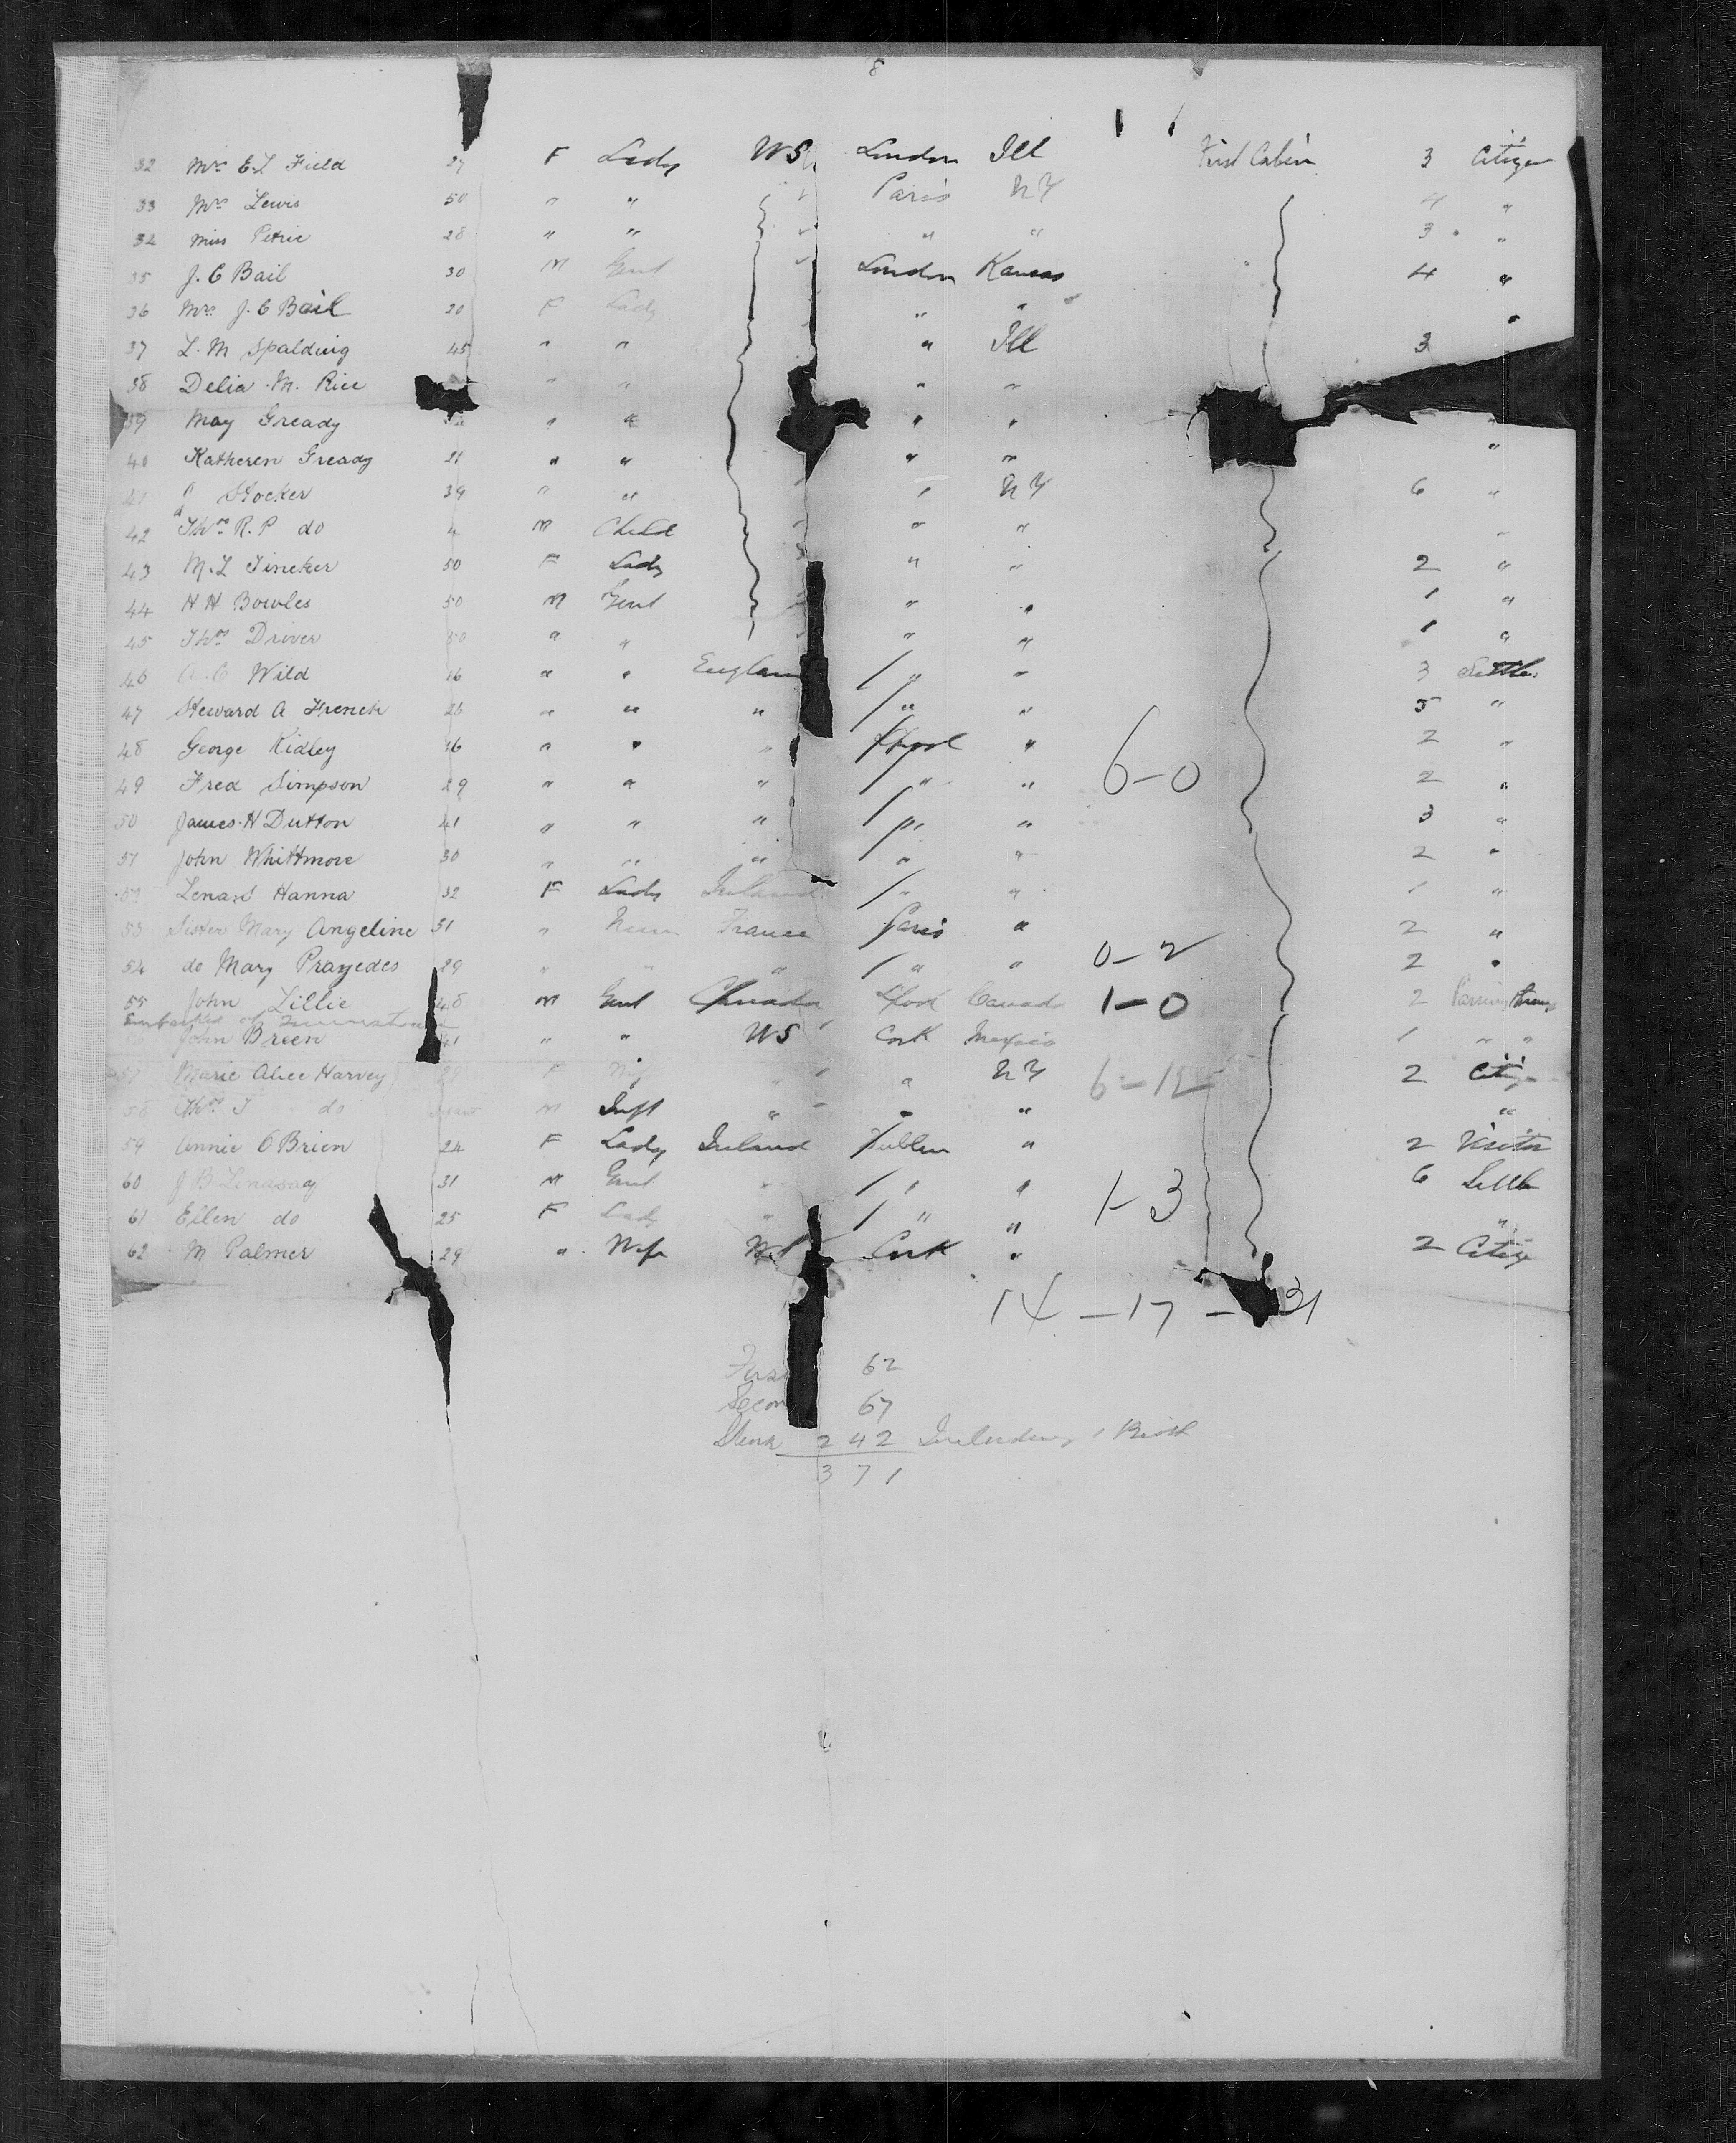 8
32 Mrs E.L Field 27 F Lady US London Ill First Cabin 3 Citizen
33 Mrs Lewis 50 " " " Paris NY 4 "
34 Miss Petrie 28 " " " " " 3 "
35 J. C Bail 30 M Gent " London Kansas 4 "
36 Mrs J. C Bail 20 F Lady " " "
37 L. M Spalding 45 " " " Ill 3
38 Delia M. Rice " " " "
39 May Gready " " " " "
40 Katheren Gready 21 " " " " "
41 Stocker 39 " " " NY 6 "
42 Thos R. P do 4 M Child " " " "
43 M. L Tincker 50 F Lady " " 2 "
44 H H Bowles 50 M Gent " " 1 "
45 Thos Driver 50 " " " " 1 "
46 Wild 26 " " England " " 3 Settler
47 Steward A French 26 " " " " " 5 "
48 George Ridley 26 " " " L'pool " 2 "
6-0
49 Fred Simpson 29 " " " " " 2 "
50 James H Dutton 41 " " " " " 3 "
51 John Whittmore 30 " " " " " 2 "
52 Lenard Hanna 32 F Lady Ireland " " 1 "
53 Sister Mary Angeline 31 " Nun France Paris " 2 "
54 do Mary Prayedes 29 " " " " " 0-2 2 "
55 John Lillie 48 M Gent Canada L'pool Canada 1-0 2 Passing through
Embarked at Queenstown
John Breen 41 " " US Cork Mexico 1 " "
57 Marie Alice Harvey 29 F Wife " " NY 6-12 2 Citizen
58 Thos J do Infant M Inft " " " "
59 Annie O Brien 24 F Lady Ireland Dublin " 2 Visitor
60 J B Lindsay 31 M Gent " " " 1-3 6 Settler
61 Ellen do 25 F Lady " " " "
62 M Palmer 29 " Wife US Cork " 2 Citizen
14 - 17 - 31
First 62
Second 67
Steerage 242 Including 1 Birth
371